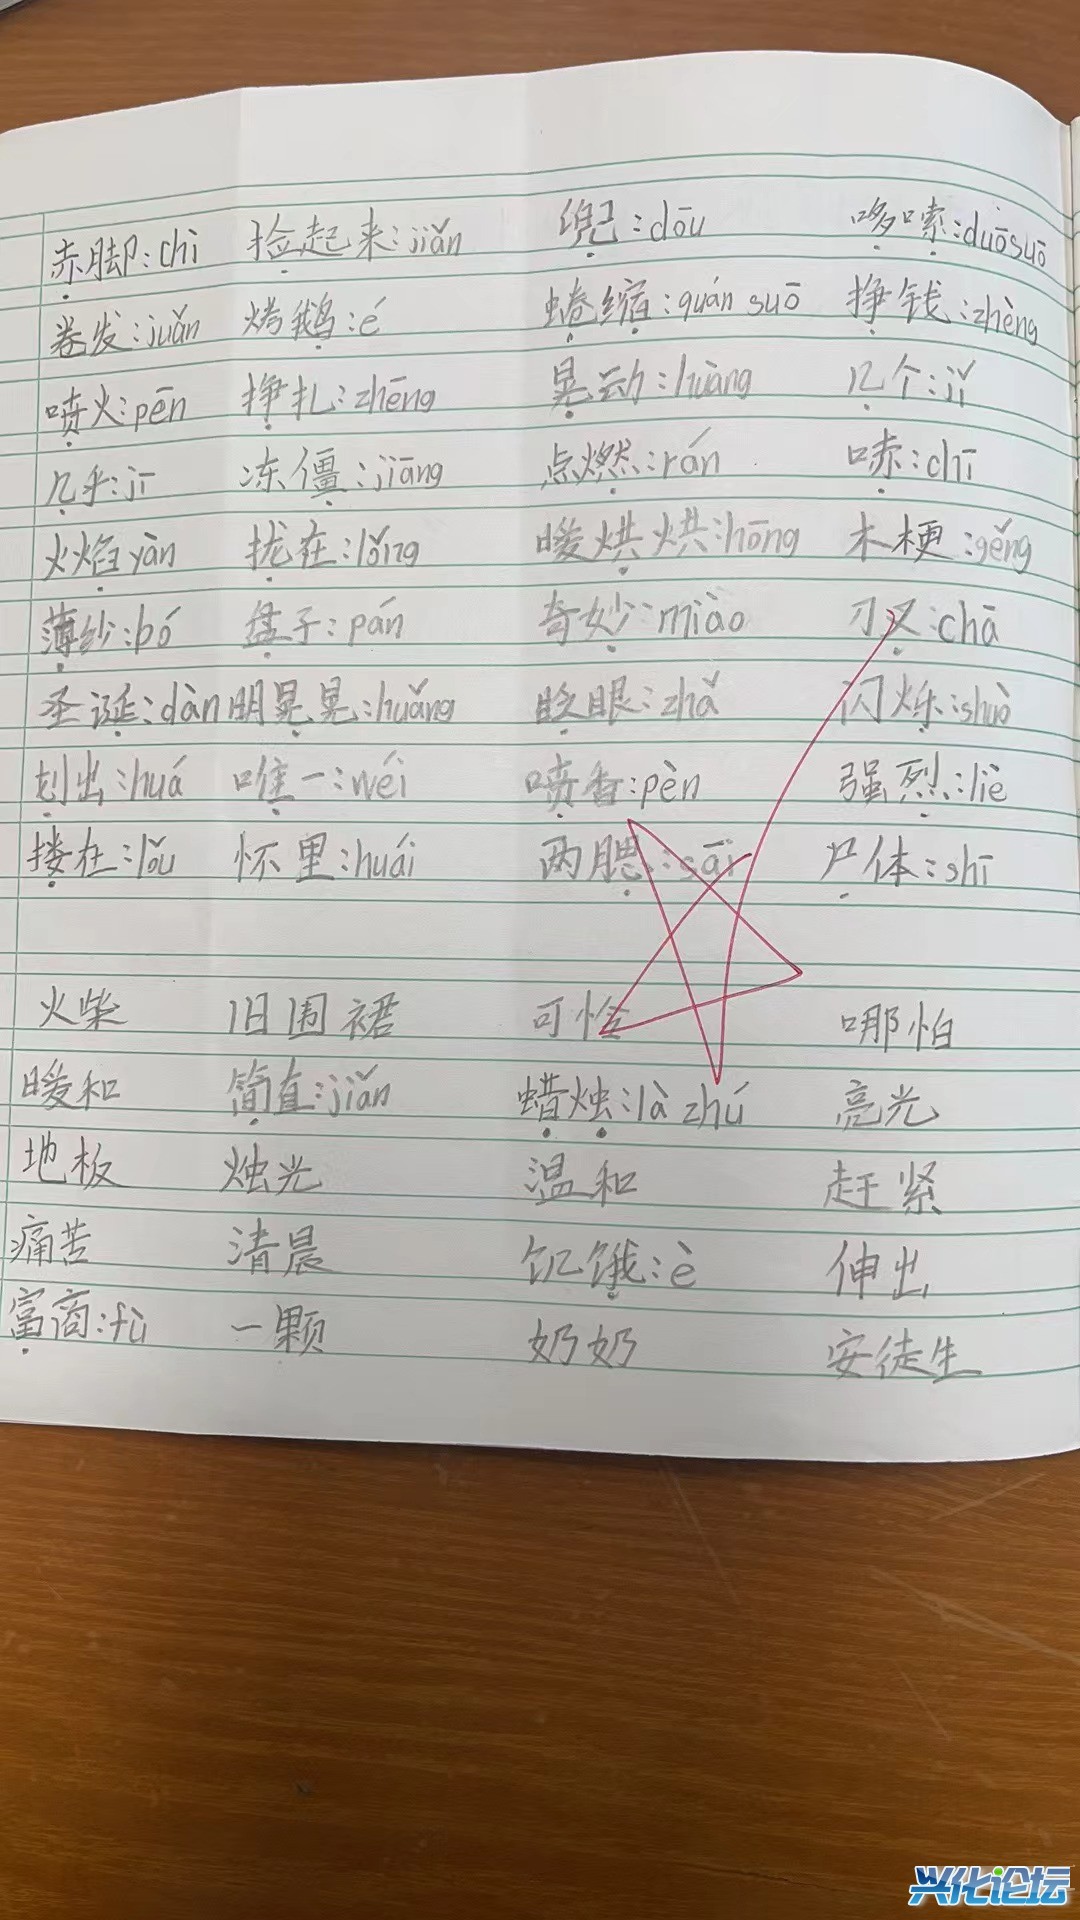 赤脚:chì 捡起来:jiǎn 兜:dōu 哆嗦:duōsuō
卷发:juǎn 烤鹅:é 蜷缩:quán suō 挣钱:zhèng
喷火:pēn 挣扎:zhēng 晃动:huàng 几个:jǐ
几乎:jī 冻僵:jiāng 点燃:rán 哧:chī
火焰yàn 拢在:lǒng 暖烘烘:hōng 木梗:gěng
薄纱:bó 盘子:pán 奇妙:miào 刀叉:chā
圣诞:dàn 明晃晃:huǎng 眨眼:zhǎ 闪烁:shuò
划出:huá 唯一:wéi 喷香:pèn 强烈:liè
搂在:lǒu 怀里:huái 两腮:sāi 尸体:shī
火柴 旧围裙 可怜 哪怕
暖和 简直:jiǎn 蜡烛:là zhú 亮光
地板 烛光 温和 赶紧
痛苦 清晨 饥饿:è 伸出
富商:fù 一颗 奶奶 安徒生
兴化论坛